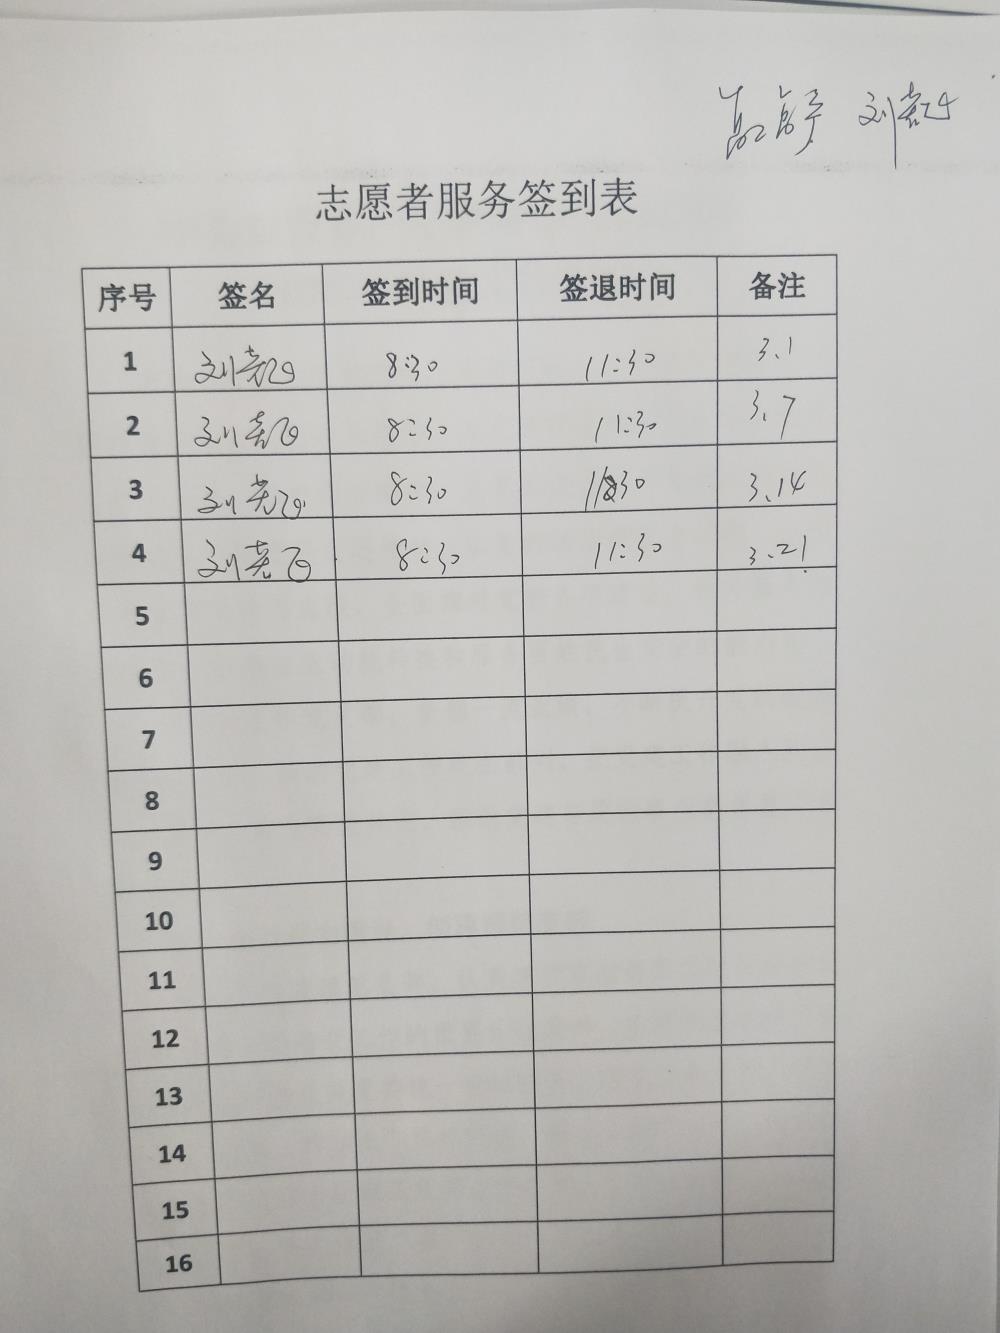 志愿者服务签到表
序号 签名 签到时间 签退时间 备注
1 刘 8:30 11:30 3.1
2 刘 8:30 11:30 3.7
3 刘 8:30 11:30 3.14
4 刘 8:30 11:30 3.21
5
6
7
8
9
10
11
12
13
14
15
16